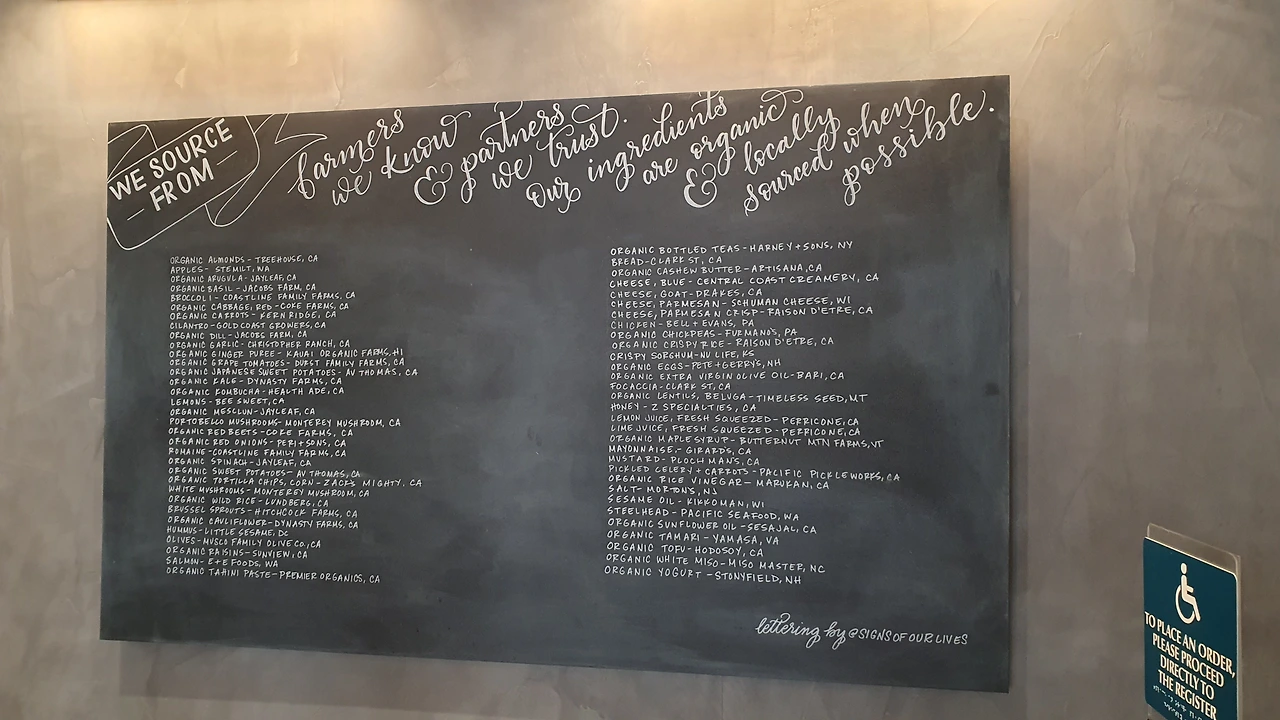 WE SOURCE
FROM
farmers
we know
& partners
we trust.
Our ingredients
are organic
& locally
sourced when
possible.
ORGANIC ALMONDS - TREEHOUSE, CA
APPLES - STEMILT, WA
ORGANIC ARUGULA - JAYLEAF, CA
ORGANIC BASIL - JACOBS FARM, CA
BROCCOLI - COASTLINE FAMILY FARMS, CA
ORGANIC CABBAGE, RED - COKE FARMS, CA
ORGANIC CARROTS - KERN RIDGE, CA
CILANTRO - GOLD COAST GROWERS, CA
ORGANIC DILL - JACOBS FARM, CA
ORGANIC GARLIC - CHRISTOPHER RANCH, CA
ORGANIC GINGER PUREE - KAUAI ORGANIC FARMS, HI
ORGANIC GRAPE TOMATOES - DURST FAMILY FARMS, CA
ORGANIC JAPANESE SWEET POTATOES - AV THOMAS, CA
ORGANIC KALE - DYNASTY FARMS, CA
ORGANIC KOMBUCHA - HEALTH ADE, CA
LEMONS - BEE SWEET, CA
ORGANIC MESCLUN - JAYLEAF, CA
PORTOBELLO MUSHROOMS - MONTEREY MUSHROOM, CA
ORGANIC RED BEETS - COKE FARMS, CA
ORGANIC RED ONIONS - PERI + SONS, CA
ROMAINE - COASTLINE FAMILY FARMS, CA
ORGANIC SPINACH - JAYLEAF, CA
ORGANIC SWEET POTATOES - AV THOMAS, CA
ORGANIC TORTILLA CHIPS, CORN - ZACK'S MIGHTY, CA
WHITE MUSHROOMS - MONTEREY MUSHROOM, CA
ORGANIC WILD RICE - LUNDBERG, CA
BRUSSEL SPROUTS - HITCHCOCK FARMS, CA
ORGANIC CAULIFLOWER - DYNASTY FARMS, CA
HUMMUS - LITTLE SESAME, DC
OLIVES - MUSCO FAMILY OLIVE CO., CA
ORGANIC RAISINS - SUNVIEW, CA
SALMON - E+E FOODS, WA
ORGANIC TAHINI PASTE - PREMIER ORGANICS, CA
ORGANIC BOTTLED TEAS - HARNEY + SONS, NY
BREAD - CLARK ST, CA
ORGANIC CASHEW BUTTER - ARTISANA, CA
CHEESE, BLUE - CENTRAL COAST CREAMERY, CA
CHEESE, GOAT - DRAKES, CA
CHEESE, PARMESAN - SCHUMAN CHEESE, WI
CHEESE, PARMESAN CRISP - RAISON D'ETRE, CA
CHICKEN - BELL + EVANS, PA
ORGANIC CHICKPEAS - FURMANO'S, PA
ORGANIC CRISPY RICE - RAISON D'ETRE, CA
CRISPY SORGHUM - NU LIFE, KS
ORGANIC EGGS - PETE + GERRY'S, NH
ORGANIC EXTRA VIRGIN OLIVE OIL - BARI, CA
FOCACCIA - CLARK ST, CA
ORGANIC LENTILS, BELUGA - TIMELESS SEED, MT
HONEY - Z SPECIALTIES, CA
LEMON JUICE, FRESH SQUEEZED - PERRICONE, CA
LIME JUICE, FRESH SQUEEZED - PERRICONE, CA
ORGANIC MAPLE SYRUP - BUTTERNUT MTN FARMS, VT
MAYONNAISE - GIRARD'S, CA
MUSTARD - PLOCHMAN'S, CA
PICKLED CELERY + CARROTS - PACIFIC PICKLEWORKS, CA
ORGANIC RICE VINEGAR - MARUKAN, CA
SALT - MORTON'S, NJ
SESAME OIL - KIKKOMAN, WI
STEELHEAD - PACIFIC SEAFOOD, WA
ORGANIC SUNFLOWER OIL - SESAJAL, CA
ORGANIC TAMARI - YAMASA, VA
ORGANIC TOFU - HODOSOY, CA
ORGANIC WHITE MISO - MISO MASTER, NC
ORGANIC YOGURT - STONYFIELD, NH
lettering by @SIGNSOFOURLIVES
TO PLACE AN ORDER,
PLEASE PROCEED
DIRECTLY TO
THE REGISTER